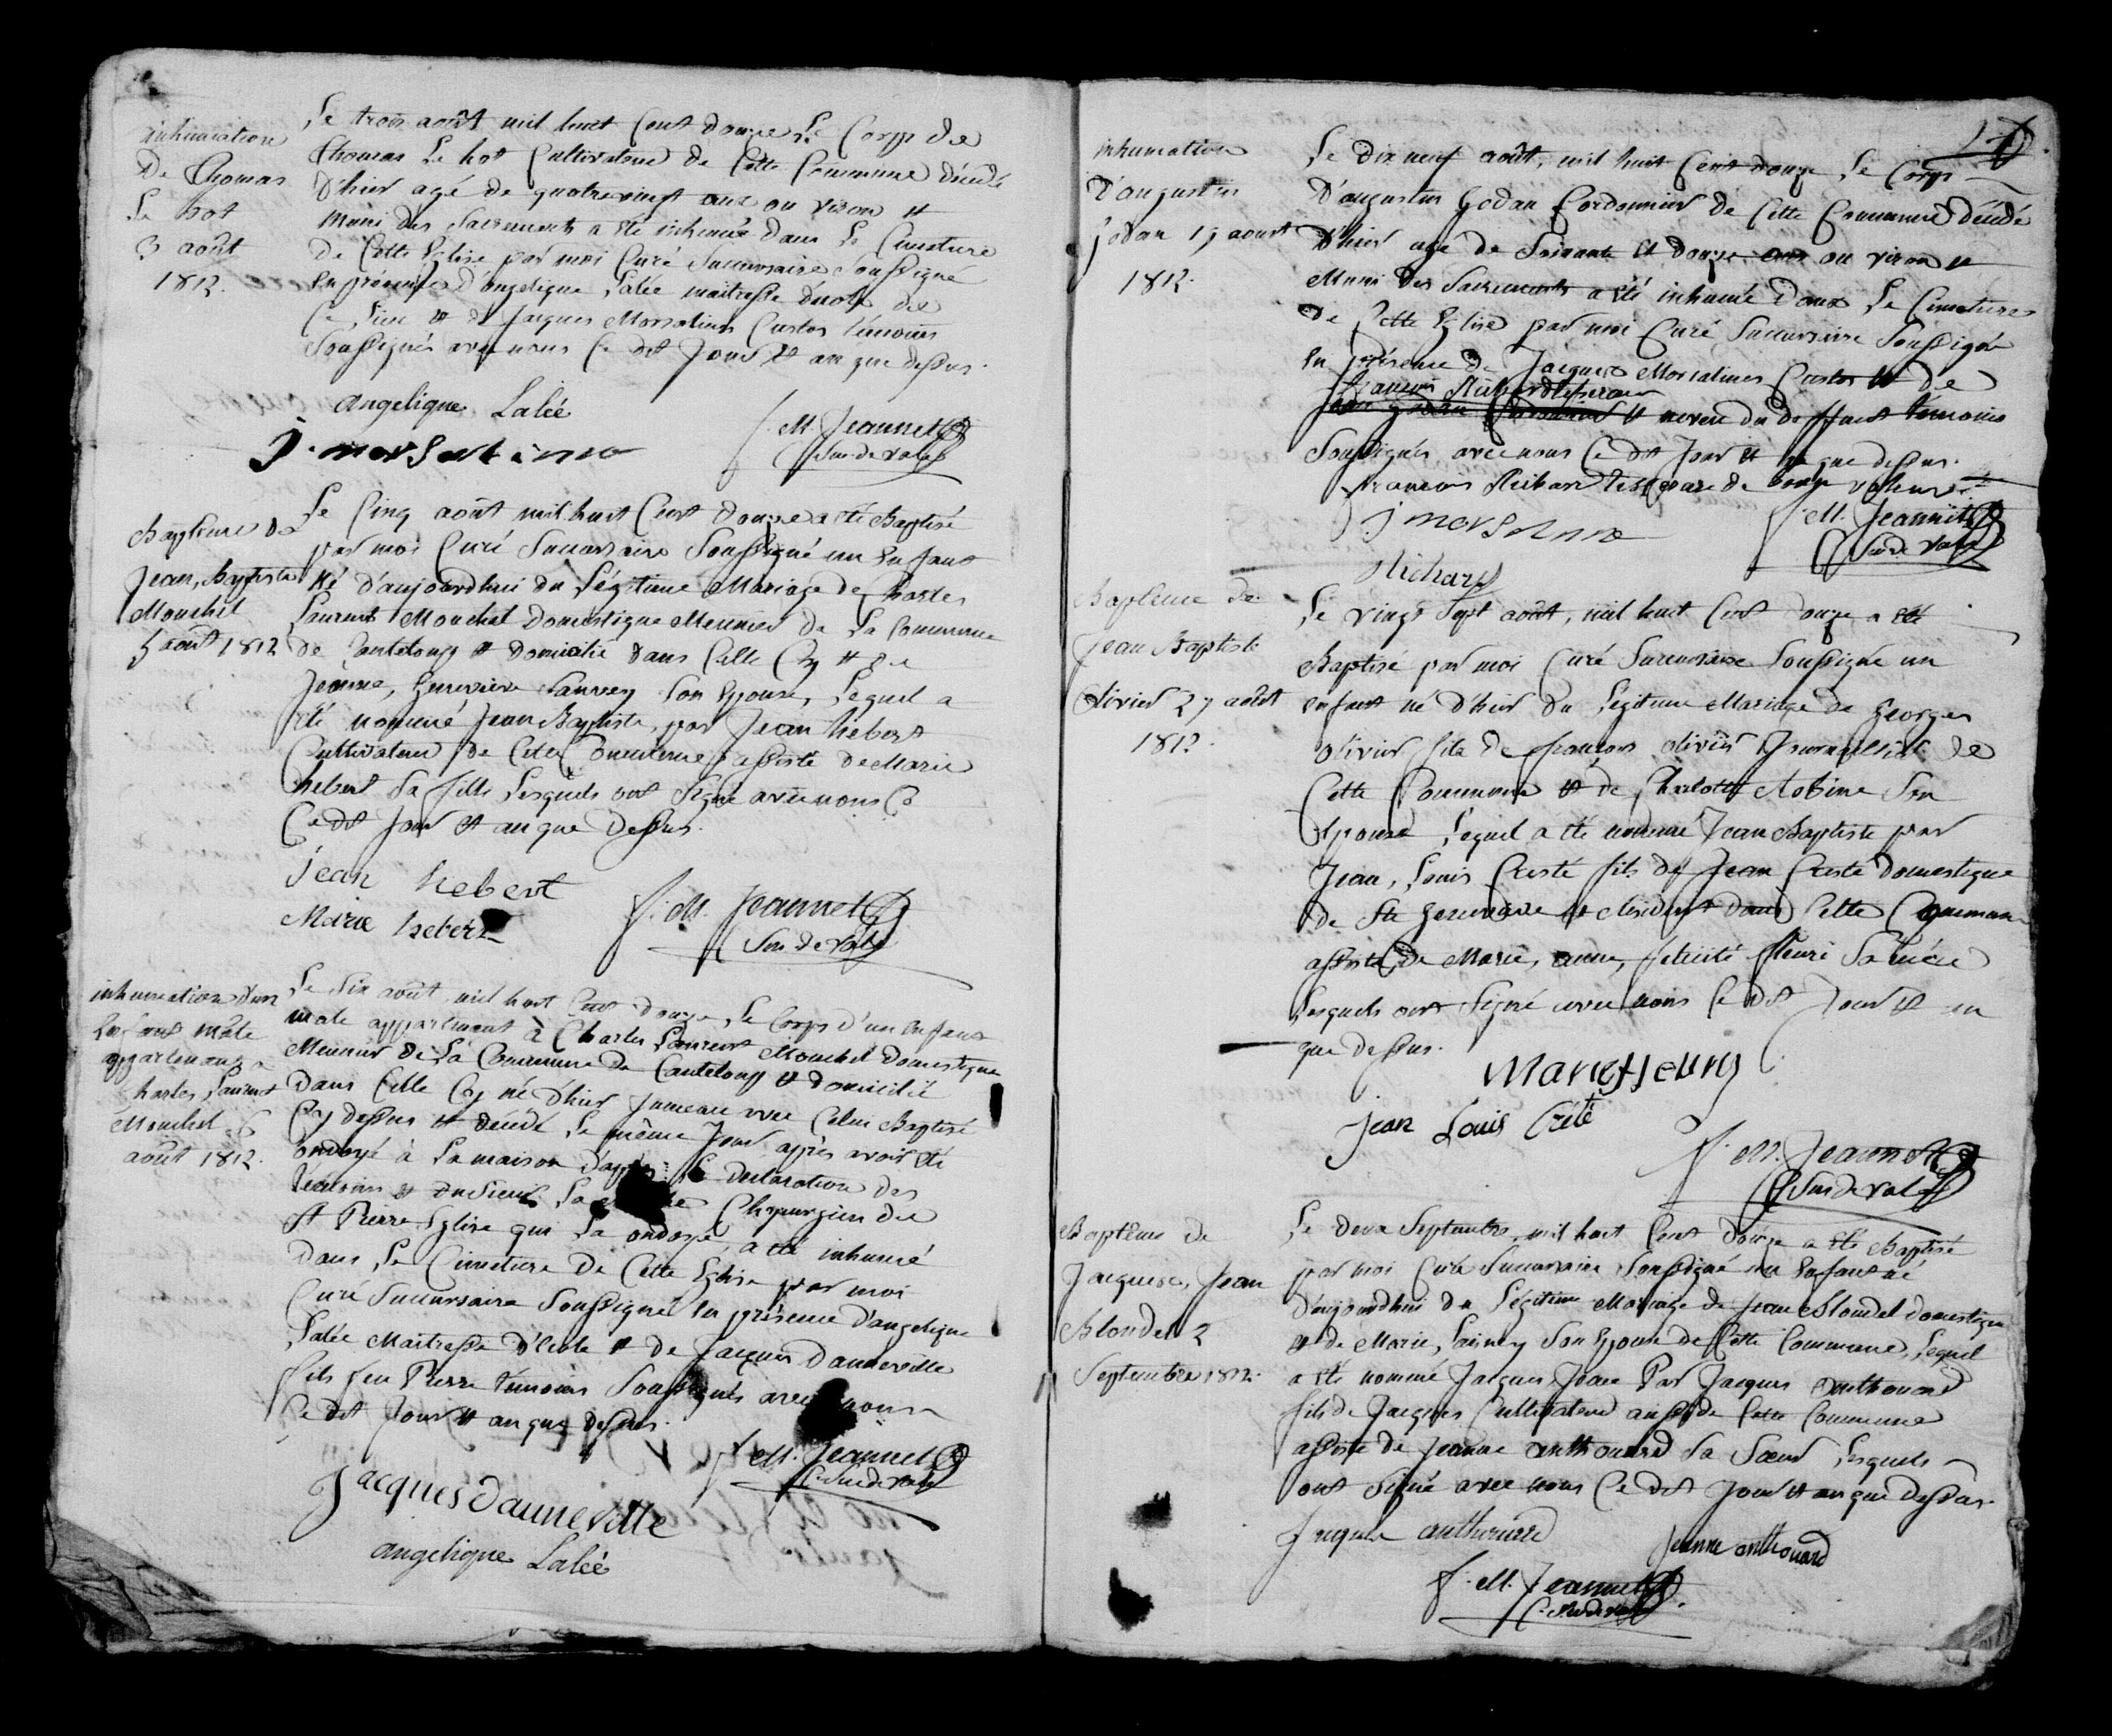 inhumation
De Thomas
Le hot
3 août
1812.
Le trois août mil huit Cent douze, Le Corps de
Thomas Le hot Cultivateur de Cette Commune décédé
D'hier agé de quatrevingt ans ou viron et
Muni des Sacrements a été inhumé dans Le Cimetiere
de Cette Eglise par moi Curé Succursaire Soussigné
En présence d'angelique Lalée maitresse d'ecole de
Ce Lieu et de Jacques Morsalines Custos témoins
Soussignés avec nous Ce dit Jour et an que dessus.
angelique Lalée
j. morsalinne
f. M. Jeannet
Sur de vale
Baptême de
Jean, Baptiste
Mouchel
5 août 1812
Le Cinq août mil huit Cent douze a été Baptisé
par moi Curé Succursaire Soussigné un Enfant
Né D'aujourdhui du Légitime Mariage de Charles
Laurent Mouchel Domestique Meunier de La Commune
de Canteloup et domicilié dans Celle Cy et de
Jeanne, Genevieve Sanvey Son Epouse, Lequel a
été nommé Jean Baptiste, par Jean hebert
Cultivateur de Cette Commune assisté de Marie
hebert Sa fille Lesquels ont Signé avec nous Ce
Ce dit Jour et an que Dessus.
jean hebert
Marie hebert
f. M. Jeannet
Sur de vale
inhumation d'un
Enfant mâle
appartenant a
Charles Laurent
Mouchel 6
août 1812.
Le Six août mil huit Cent douze, Le Corps d'un Enfant
male appartenant à Charles Laurent Mouchel Domestique
Meunier de La Commune de Canteloup et domicilié
dans Celle Cy né D'hier Jumeau avec Celui Baptisé
Cy dessus et décédé Le même Jour après avoir été
ondoyé à La maison d'après La Declaration des
témoins et du Sieur Chirurgien de
St Pierre Eglise qui La ondoyé, a été inhumé
dans Le Cimetiere de Cette Eglise par moi
Curé Succursaire Soussigné En présence d'angelique
Lalée Maitresse d'Ecole et de Jacques Danneville
fils feu Pierre témoins Soussignés avec nous
Ce dit Jour et an que dessus.
f. M. Jeannet
C. Sur de vale
Jacques danneville
angelique Lalée
inhumation
D'augustin
Godan 19 aoust
1812.
Le Dix neuf août, mil huit Cent douze Le Corps
D'augustin Godan Cordonnier de Cette Commune décédé
D'hier agé de Soixante et douze ans ou viron et
Muni des Sacrements a été inhumé Dans Le Cimetiere
de Cette Eglise par moi Curé Succursaire Soussigné
En présence de Jacques Morsalines Custos et de
françois Richard
et neveu du deffunt témoins
Soussignés avec nous Ce dit Jour et an que dessus.
francois Richard
j morsalinne
f. M. Jeannet
Sur de vale
Richard
Baptême de
Jean Baptiste
Olivier 27 août
1812.
Le vingt Sept août, mil huit Cent douze a été
Baptisé par moi Curé Succursaire Soussigné un
enfant né D'hier du Légitime Mariage de Georges
olivier fils de françois olivier Journallier de
Cette Commune et de Charlotte Aobine Son
Epouse Lequel a été nommé Jean Baptiste par
Jean, Louis Creté fils de Jean Creté domestique
de Ste Genevieve et Residant dans Cette Commune
assisté de Marie, anne, felicité fleuri Sa niéce
Lesquels ont Signé avec nous Ce dit Jour et an
que dessus.
Marie fleury
jean Louis Crété
f. M. Jeannet
Sur de vale
Baptême de
Jacques, Jean
Blondel 2
Septembre 1812.
Le deux Septembre, mil huit Cent douze a été Baptisé
par moi Curé Succursaire Soussigné un Enfant né
d'aujourdhui du Légitime Mariage de Jean Blondel domestique
et de Marie, Sainey Son Epouse de Cette Commune, Lequel
a été nommé Jacques, Jean Par Jacques anthouard
fils de Jacques Cultivateur aussy de Cette Commune
assisté de Jeanne anthouard Sa Sœur Lesquels
ont Signé avec nous Ce dit Jour et an que dessus.
Jaque anthouard
Jeanne anthouard
f. M. Jeannet
C. Sur de vale